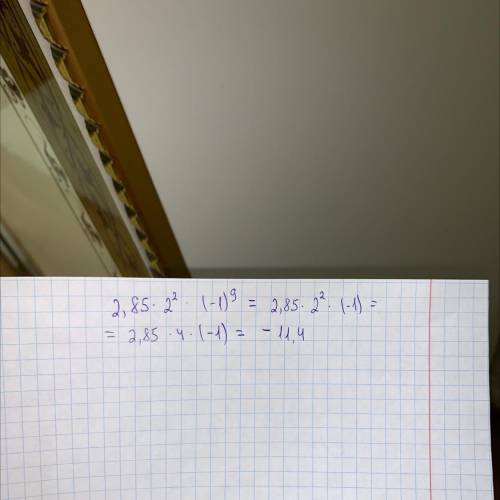 2,85 · 2² · (-1)⁹ = 2,85 · 2² · (-1) =
= 2,85 · 4 · (-1) = -11,4